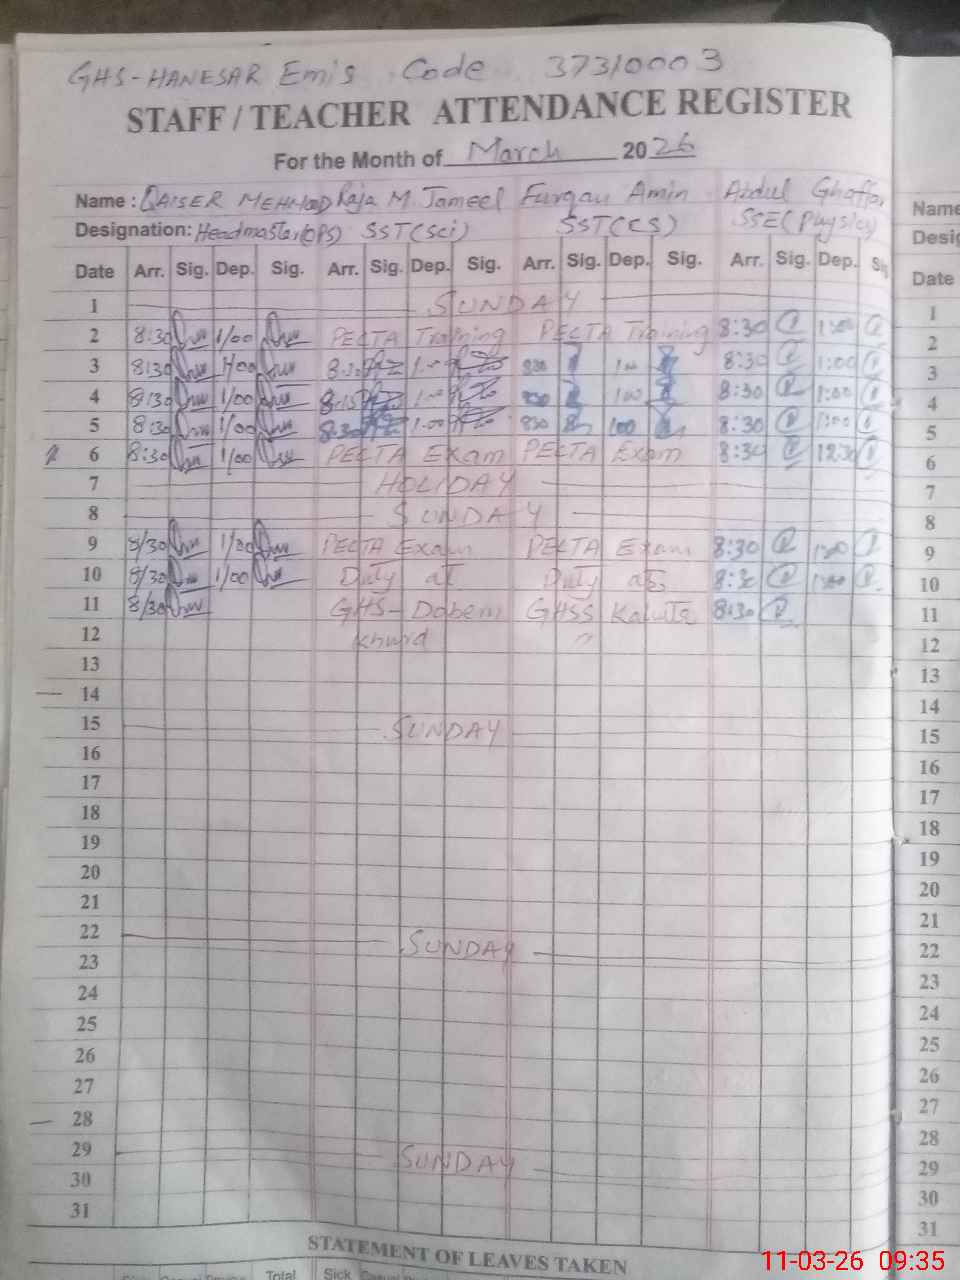 GHS-HANESAR Emis Code 37310003
STAFF / TEACHER ATTENDANCE REGISTER
For the Month of March 2026
Name : QAISER MEHMOOD Raja M. Jameel Furqan Amin Abdul Ghaffar Name
Designation: Headmaster(OPS) SST(Sci) SST(CS) SSE(Physics) Desig
Date Arr. Sig. Dep. Sig. Arr. Sig. Dep. Sig. Arr. Sig. Dep. Sig. Arr. Sig. Dep. Sig Date
1 SUNDAY 1
2 8:30 1/00 PECTA Training PECTA Training 8:30 1:00 2
3 8:30 1/00 8:30 1.00 830 100 8:30 1:00 3
4 8:30 1/00 8:15 1.00 830 100 8:30 1:00 4
5 8:30 1/00 8:30 1.00 830 100 8:30 1:00 5
6 8:30 1/00 PECTA Exam PECTA Exam 8:30 12:30 6
7 HOLIDAY 7
8 SUNDAY 8
9 8/30 1/00 PECTA Exam PECTA Exam 8:30 1:00 9
10 8/30 1/00 Duty at Duty at 8:30 1:00 10
11 8/30 GHS- Dobern GHSS Kahuta 8:30 11
12 Khurd " 12
13 13
14 14
15 SUNDAY 15
16 16
17 17
18 18
19 19
20 20
21 21
22 SUNDAY 22
23 23
24 24
25 25
26 26
27 27
28 28
29 SUNDAY 29
30 30
31 31
STATEMENT OF LEAVES TAKEN
Total Sick
11-03-26 09:35